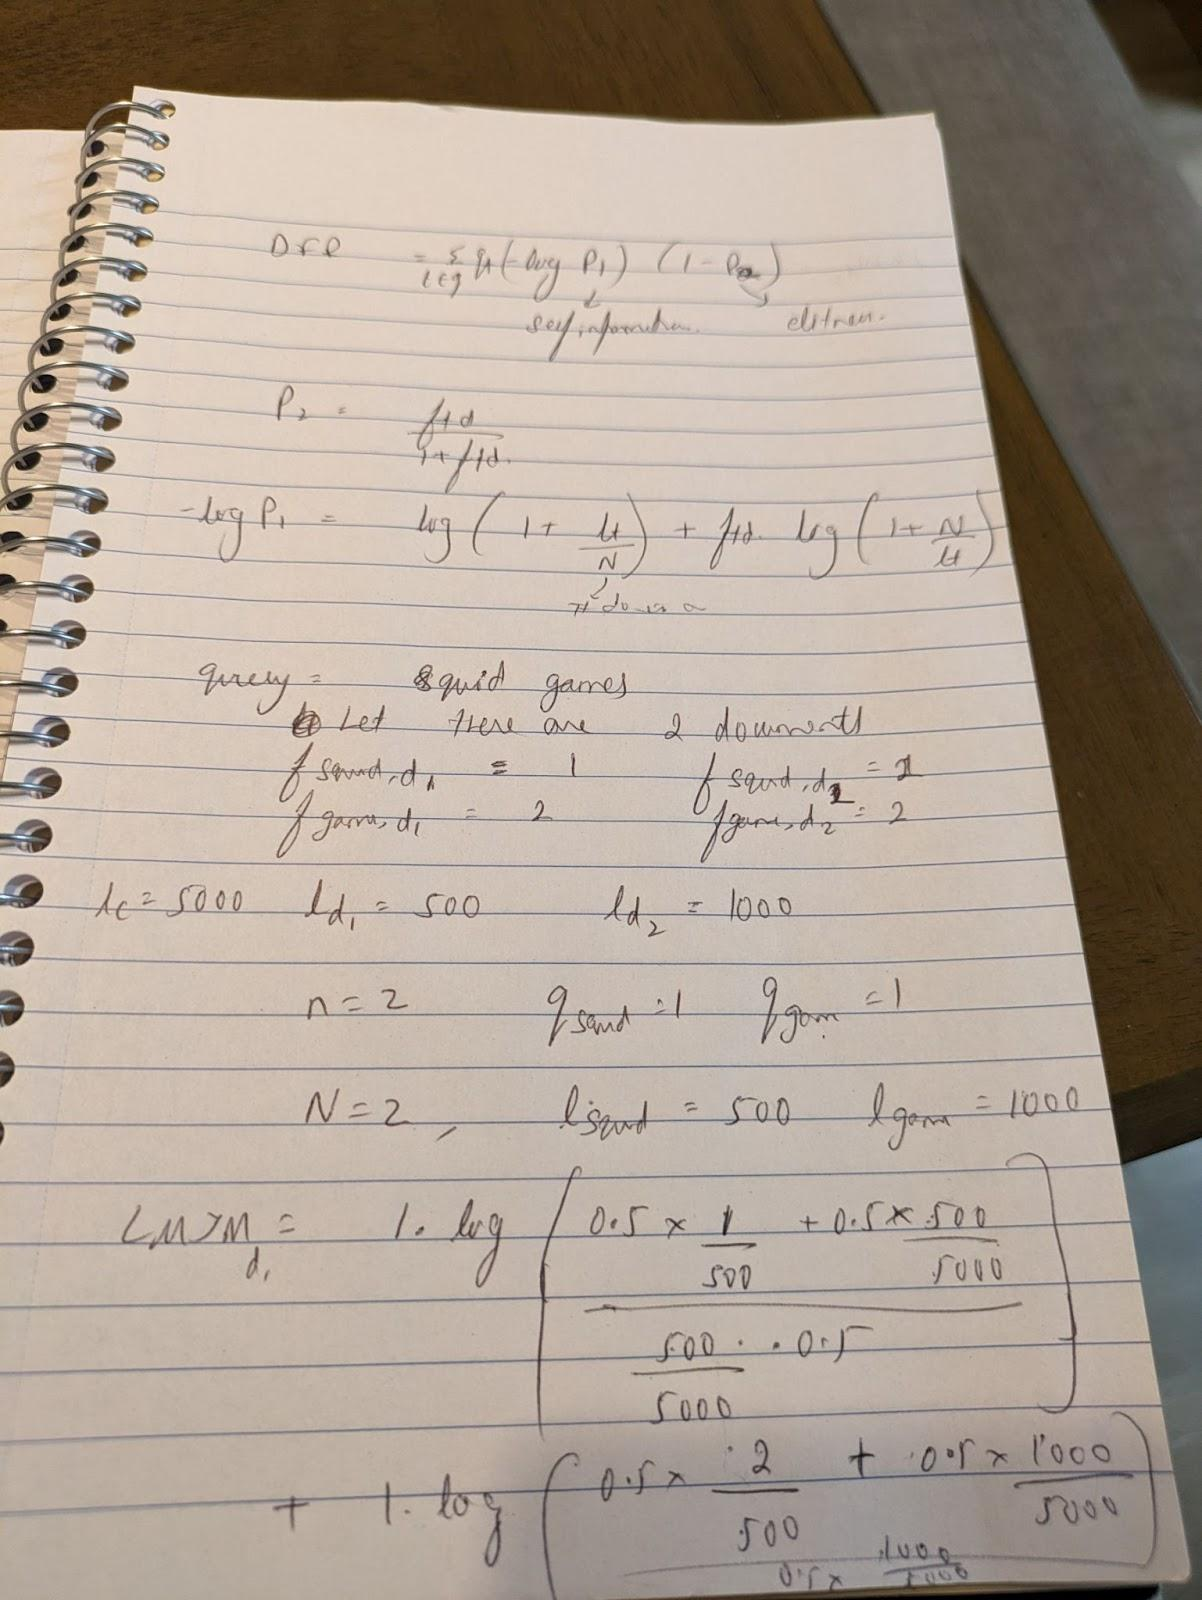 DFR = Σ t∈q qt (-log P1) (1 - P2)
self information. elitness.
P2 = ftd / 1 + ftd.
-log P1 = log ( 1 + lt / N ) + ftd. log ( 1 + N / lt )
query = squid games
Let there are 2 documents
f squid, d1 = 1 f squid, d2 = 1
f game, d1 = 2 f game, d2 = 2
lc = 5000 ld1 = 500 ld2 = 1000
n = 2 q squid = 1 q gam = 1
N = 2, l squid = 500 l game = 1000
LMJM d1 = 1. log [ 0.5 × 1 / 500 + 0.5 × 500 / 5000
500 / 5000 . 0.5 ]
+ 1. log ( 0.5 × 2 / 500 + 0.5 × 1000 / 5000
0.5 × 1000 / 5000